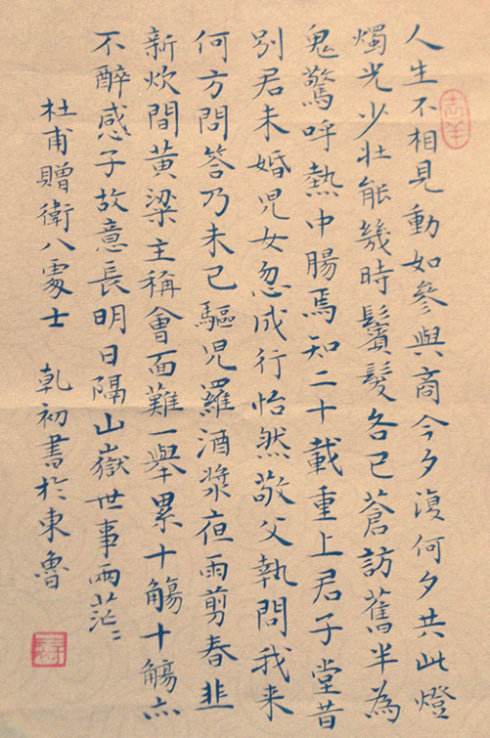 人生不相見動如參與商今夕復何夕共此燈
燭光少壯能幾時鬢髮各已蒼訪舊半為
鬼驚呼熱中腸焉知二十載重上君子堂昔
別君未婚児女忽成行怡然敬父執問我来
何方問答乃未已驅児羅酒漿夜雨剪春韭
新炊間黃粱主稱會面難一舉累十觴十觴亦
不醉感子故意長明日隔山嶽世事兩茫〻
杜甫贈衛八處士 乾初書於東魯